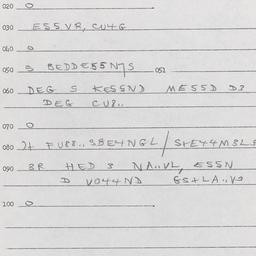 020 O
030 ESSVR, CU4G
040 O
050 S BEDDESSN7S 051
060 DEG S KESSND MESSD D3
DEG CU8..
070 O
080 FU88.. SBE4NGL / S4EY4M3LS
090 3R HED 3 NA..VL, ESSN
D VO44ND GS4LA..V9
100 O